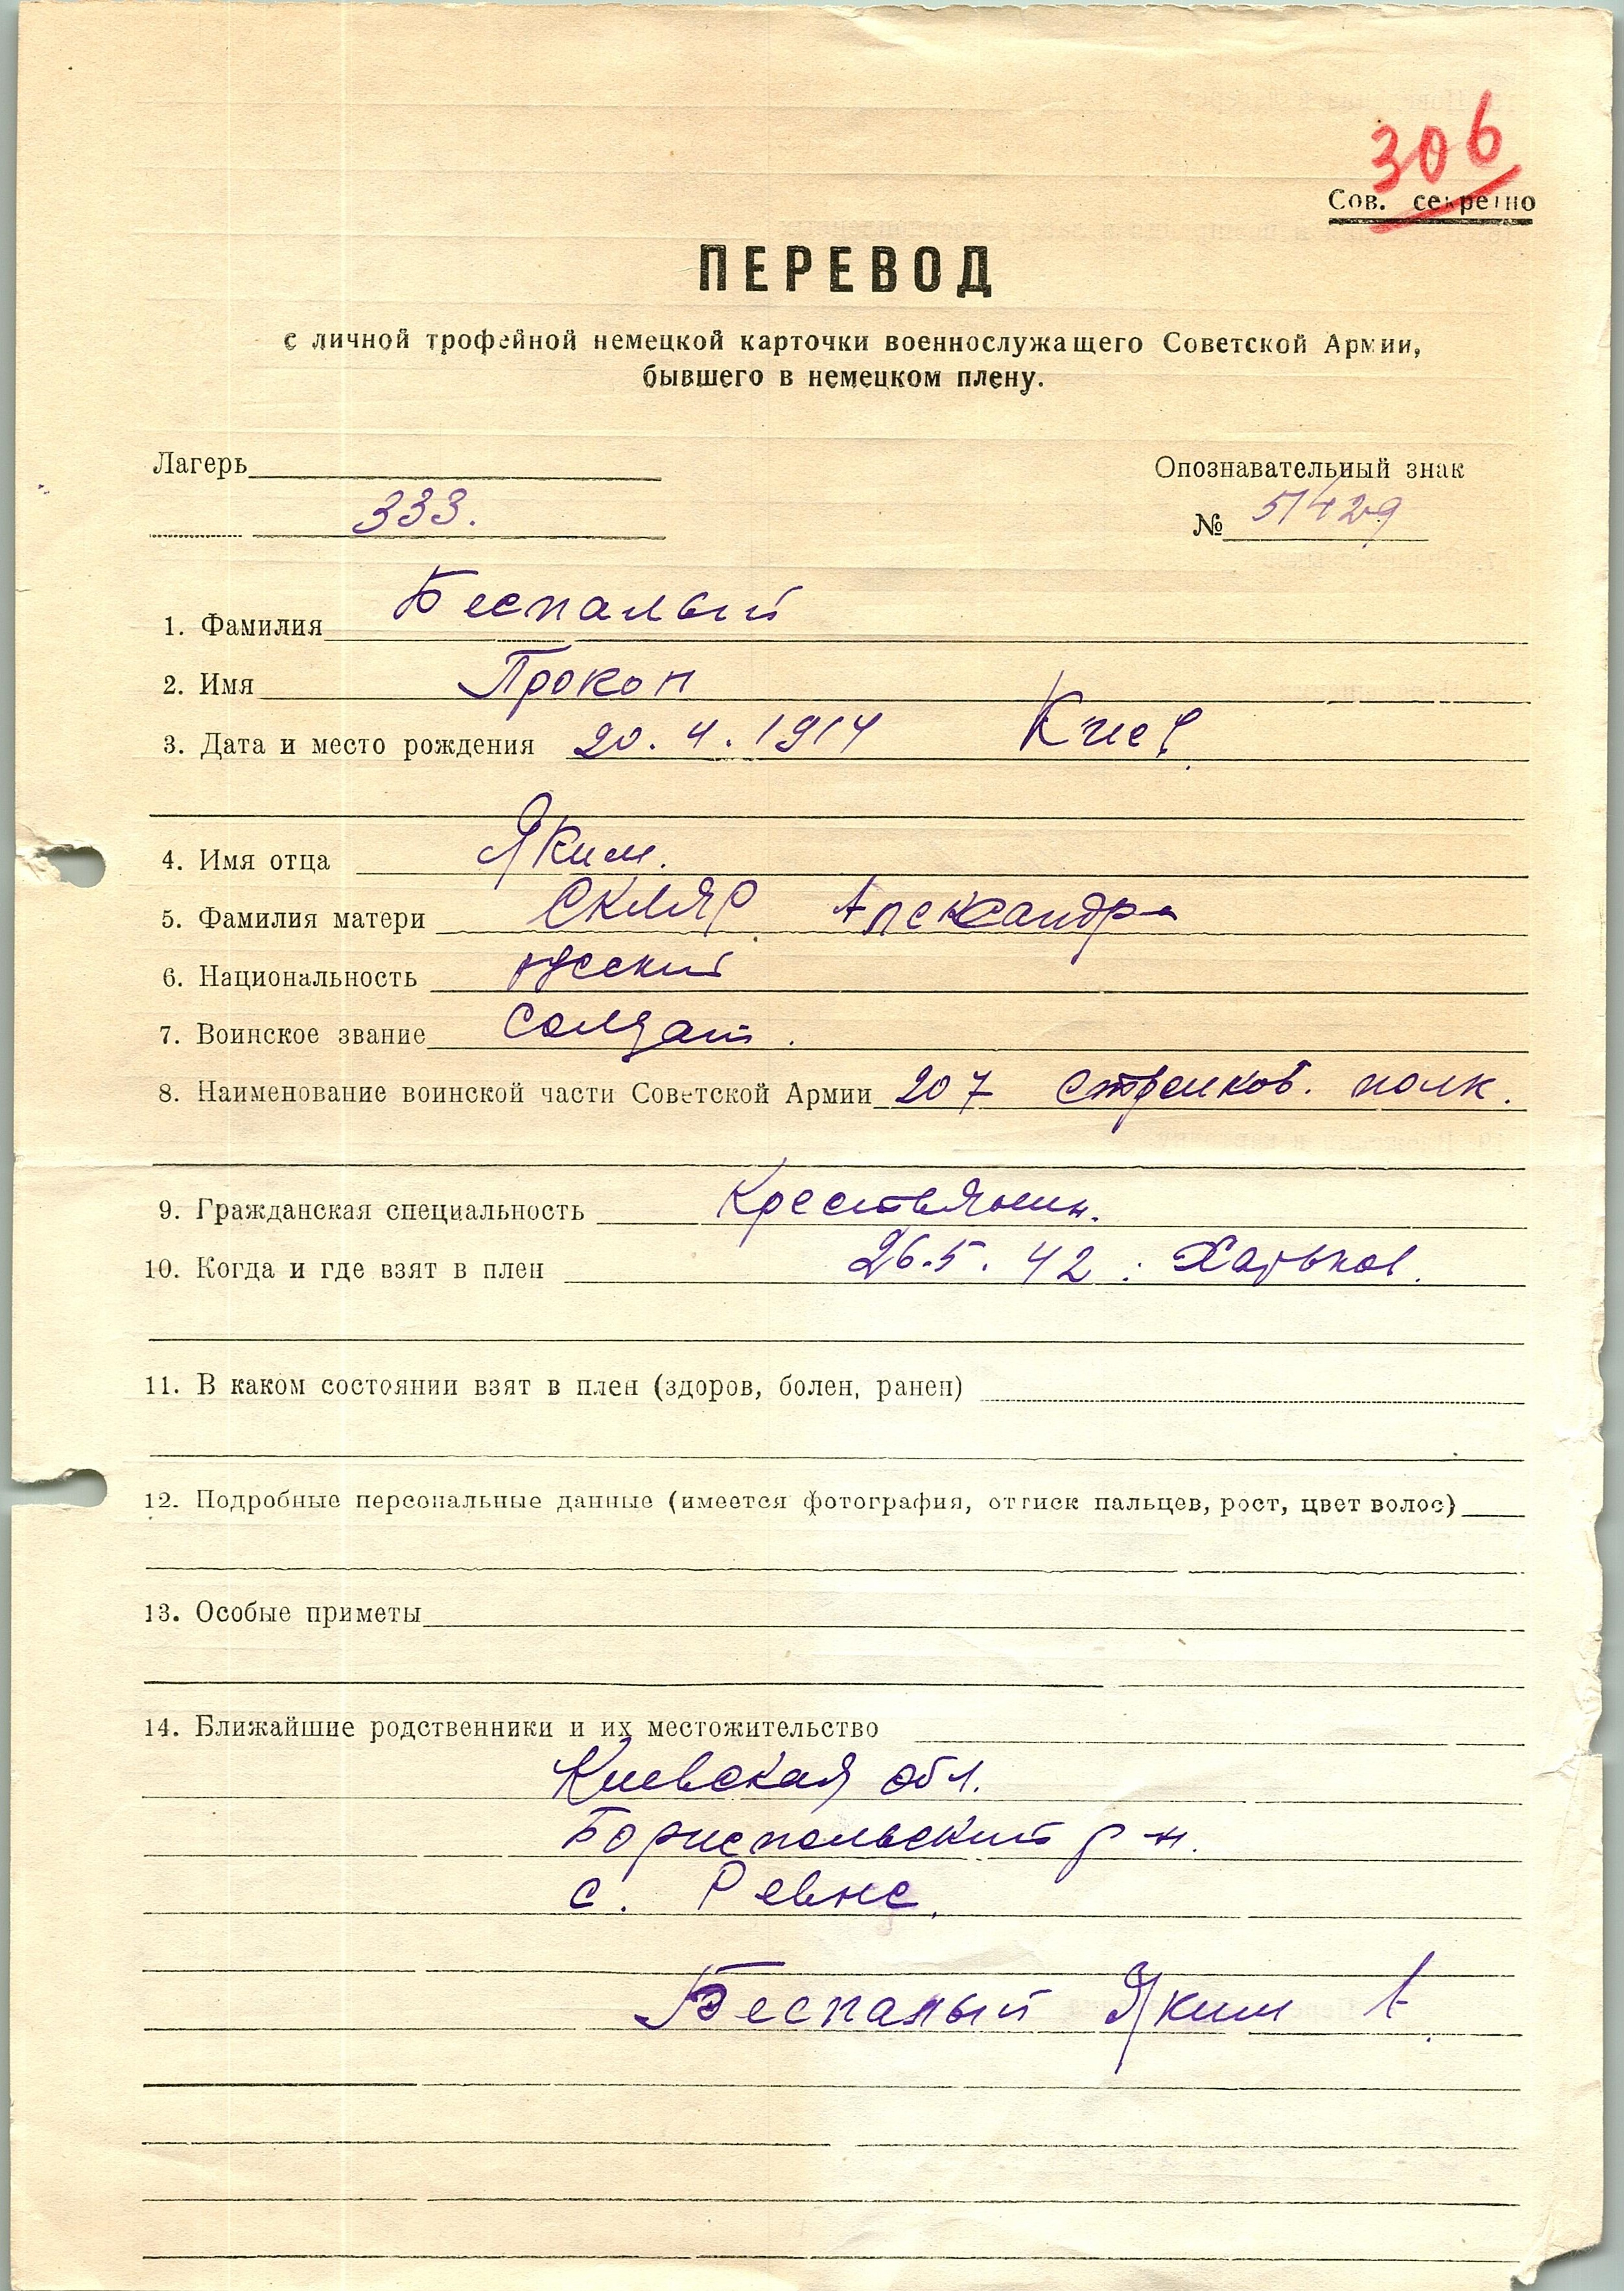 306
Сов. секретно
ПЕРЕВОД
с личной трофейной немецкой карточки военнослужащего Советской Армии,
бывшего в немецком плену.
Лагерь
Опознавательный знак
333.
№ 51429
1. Фамилия Беспалый
2. Имя Прокоп
3. Дата и место рождения 20.4.1914 Киев.
4. Имя отца Яким.
5. Фамилия матери Скляр Александра
6. Национальность русский
7. Воинское звание Солдат.
8. Наименование воинской части Советской Армии 207 стрелков. полк.
9. Гражданская специальность Крестьянин.
10. Когда и где взят в плен 26.5.42. Харьков.
11. В каком состоянии взят в плен (здоров, болен, ранен)
12. Подробные персональные данные (имеется фотография, оттиск пальцев, рост, цвет волос)
13. Особые приметы
14. Ближайшие родственники и их местожительство
Киевская обл.
Бориспольский р-н.
с. Ревне.
Беспалый Яким А.